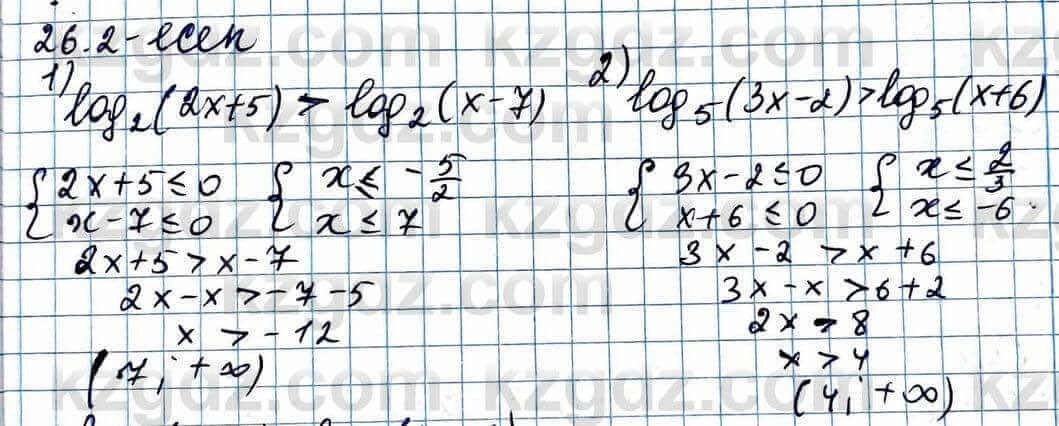 26.2-есеп
1) log₂(2x+5) > log₂(x-7)
{2x+5≤0 {x≤ -5/2
x-7≤0 x≤7
2x+5>x-7
2x-x>-7-5
x>-12
(7; +∞)
2) log₅(3x-2)>log₅(x+6)
{3x-2≤0 {x≤2/3
x+6≤0 x≤-6.
3x-2>x+6
3x-x>6+2
2x>8
x>4
(4; +∞)
kzgdz.com